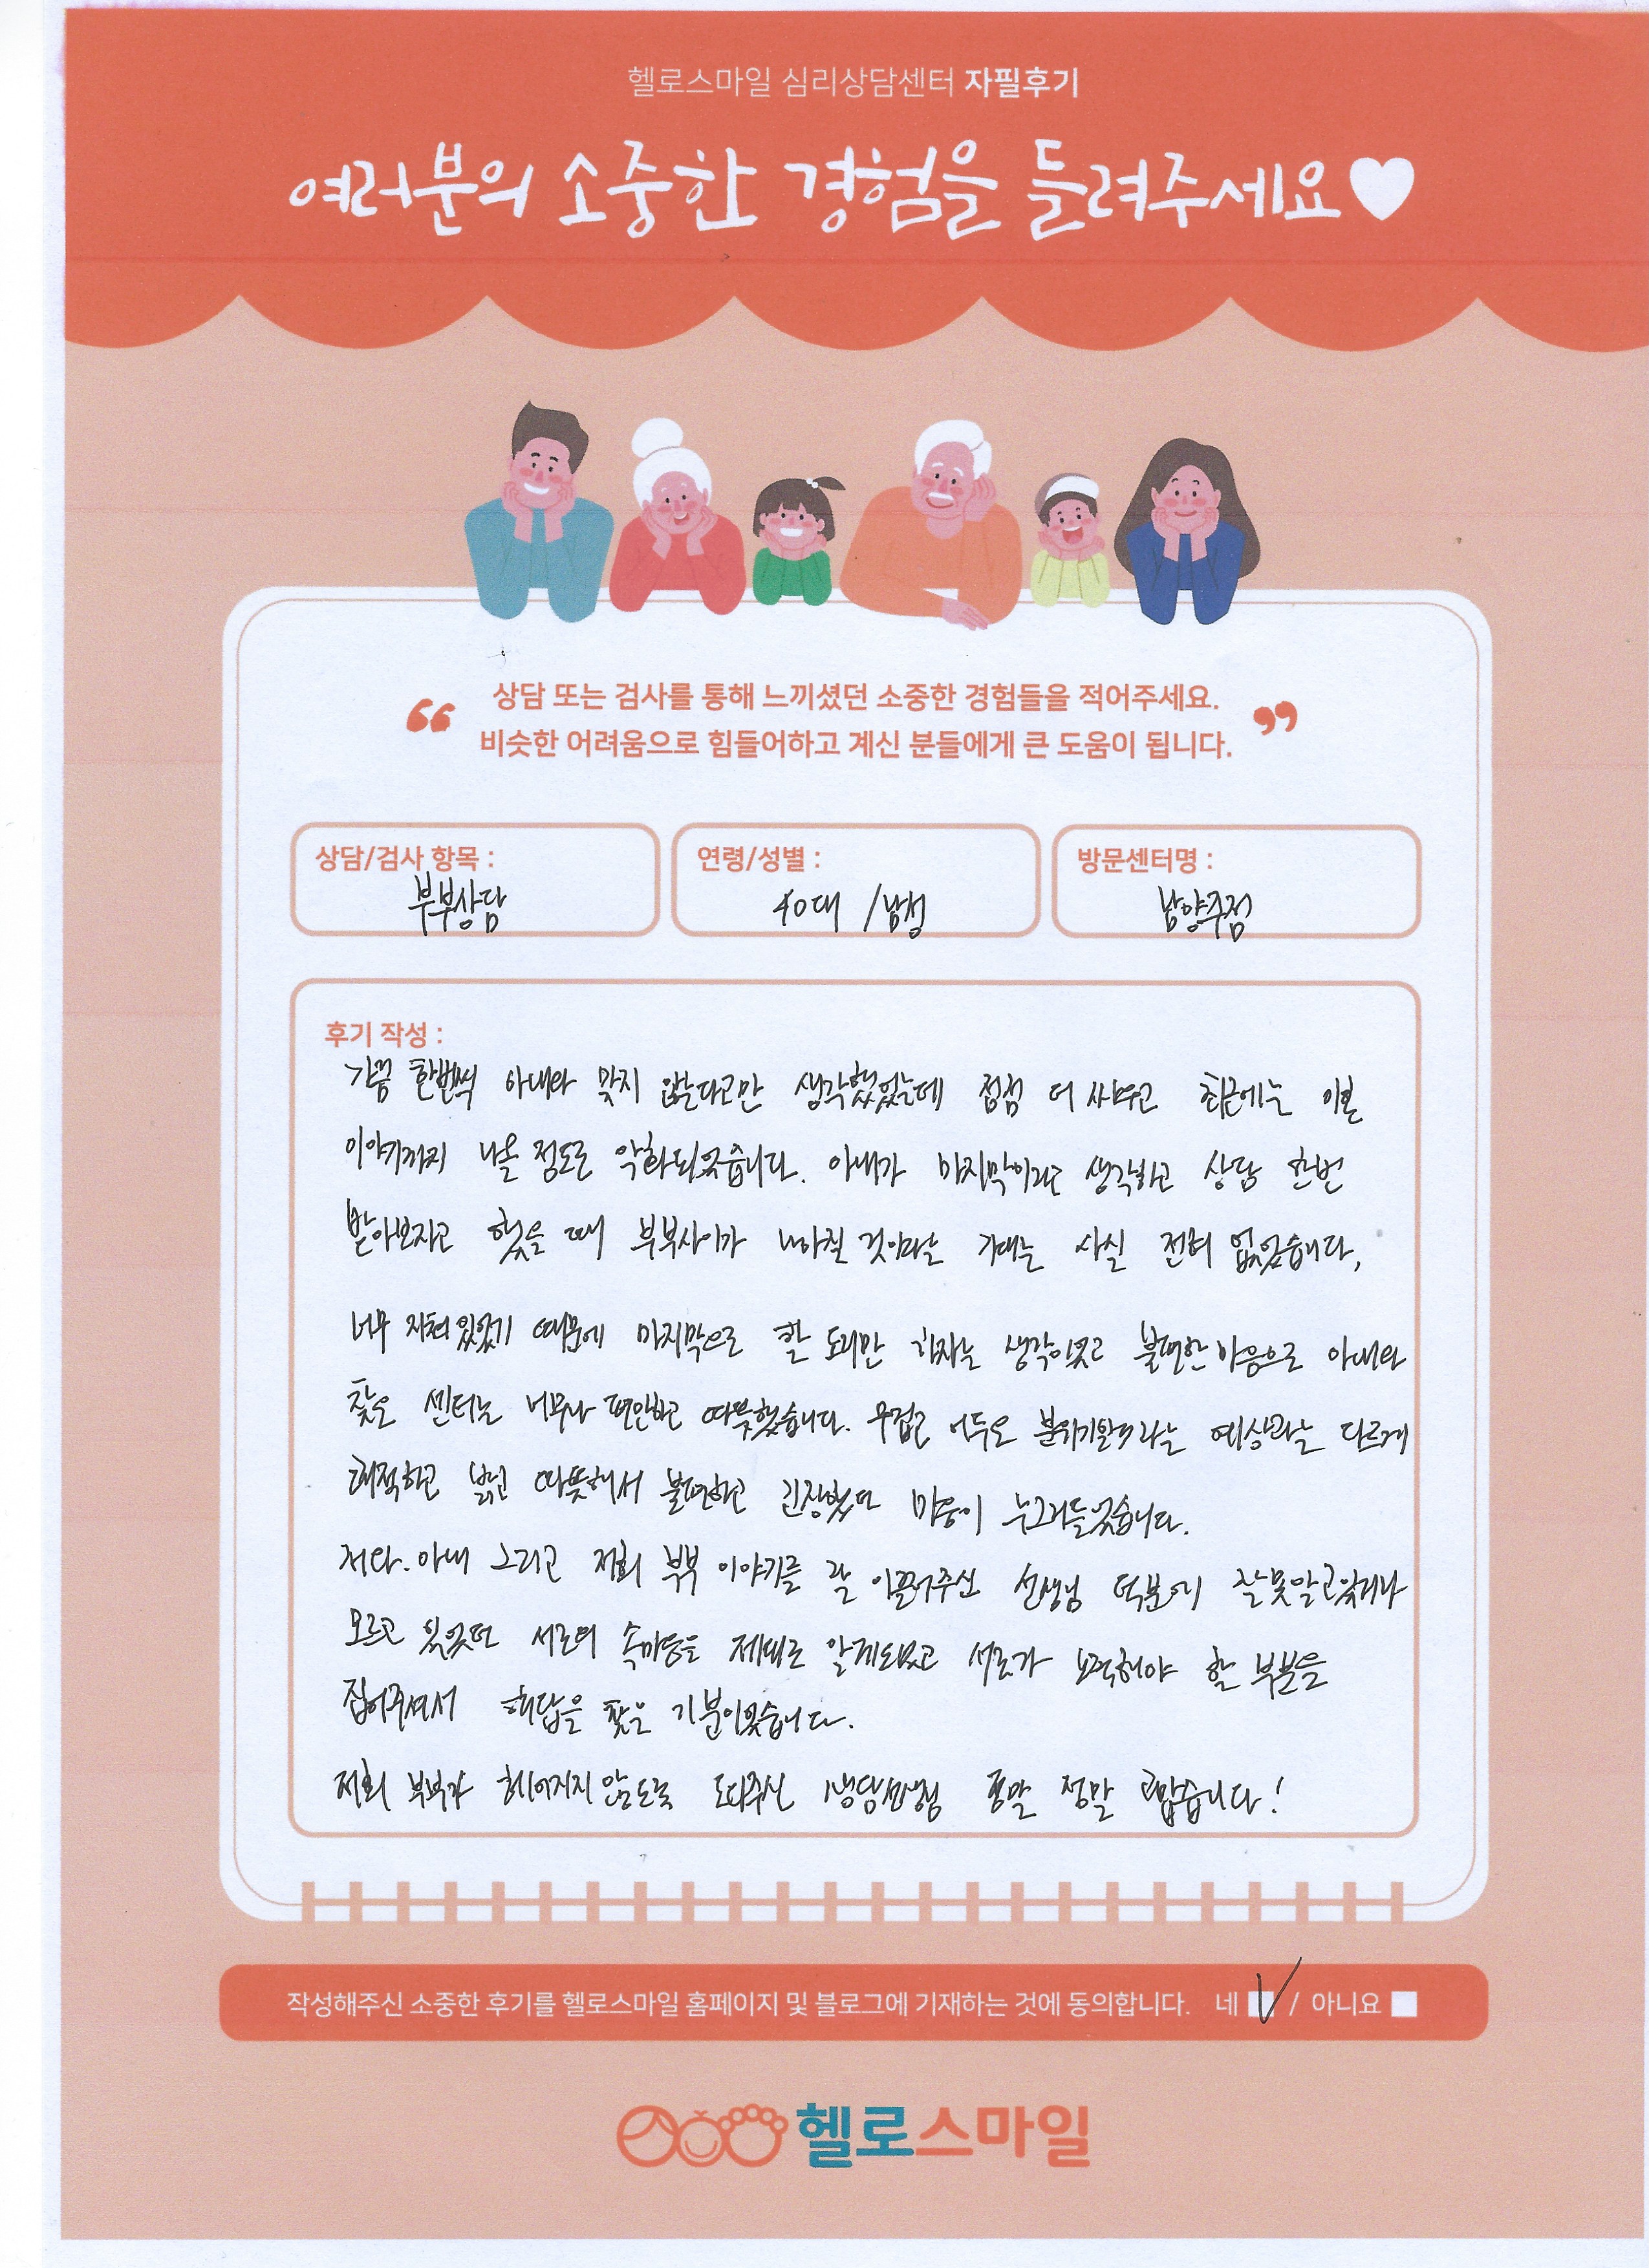 헬로스마일 심리상담센터 자필후기
여러분의 소중한 경험을 들려주세요♥
“ 상담 또는 검사를 통해 느끼셨던 소중한 경험들을 적어주세요.
비슷한 어려움으로 힘들어하고 계신 분들에게 큰 도움이 됩니다. ”
상담/검사 항목 : 부부상담
연령/성별 : 40대 /남성
방문센터명 : 남양주점
후기 작성 :
가끔 한번씩 아내와 맞지 않는다고만 생각했었는데 점점 더 싸우고 최근에는 이혼
이야기까지 나올 정도로 악화되었습니다. 아내가 마지막이라 생각하고 상담 한번
받아보자고 했을 때 부부사이가 나아질 것이라는 기대는 사실 전혀 없었습니다,
너무 지쳐있었기 때문에 마지막으로 할 도리만 하자는 생각이었고 불편한 마음으로 아내와
찾은 센터는 너무나 편안하고 따뜻했습니다. 무겁고 어두운 분위기일거라는 예상과는 다르게
쾌적하고 밝고 따뜻해서 불편하고 긴장했던 마음이 누그러들었습니다.
저와.아내 그리고 저희 부부 이야기를 잘 이끌어주신 선생님 덕분에 잘못알고있거나
모르고 있었던 서로의 속마음을 제대로 알게되었고 서로가 노력해야 할 부분을
집어주셔서 해답을 찾은 기분이었습니다.
저희 부부가 헤어지지 않도록 도와주신 정말 정말 고맙습니다!
작성해주신 소중한 후기를 헬로스마일 홈페이지 및 블로그에 기재하는 것에 동의합니다. 네 V / 아니요
헬로스마일